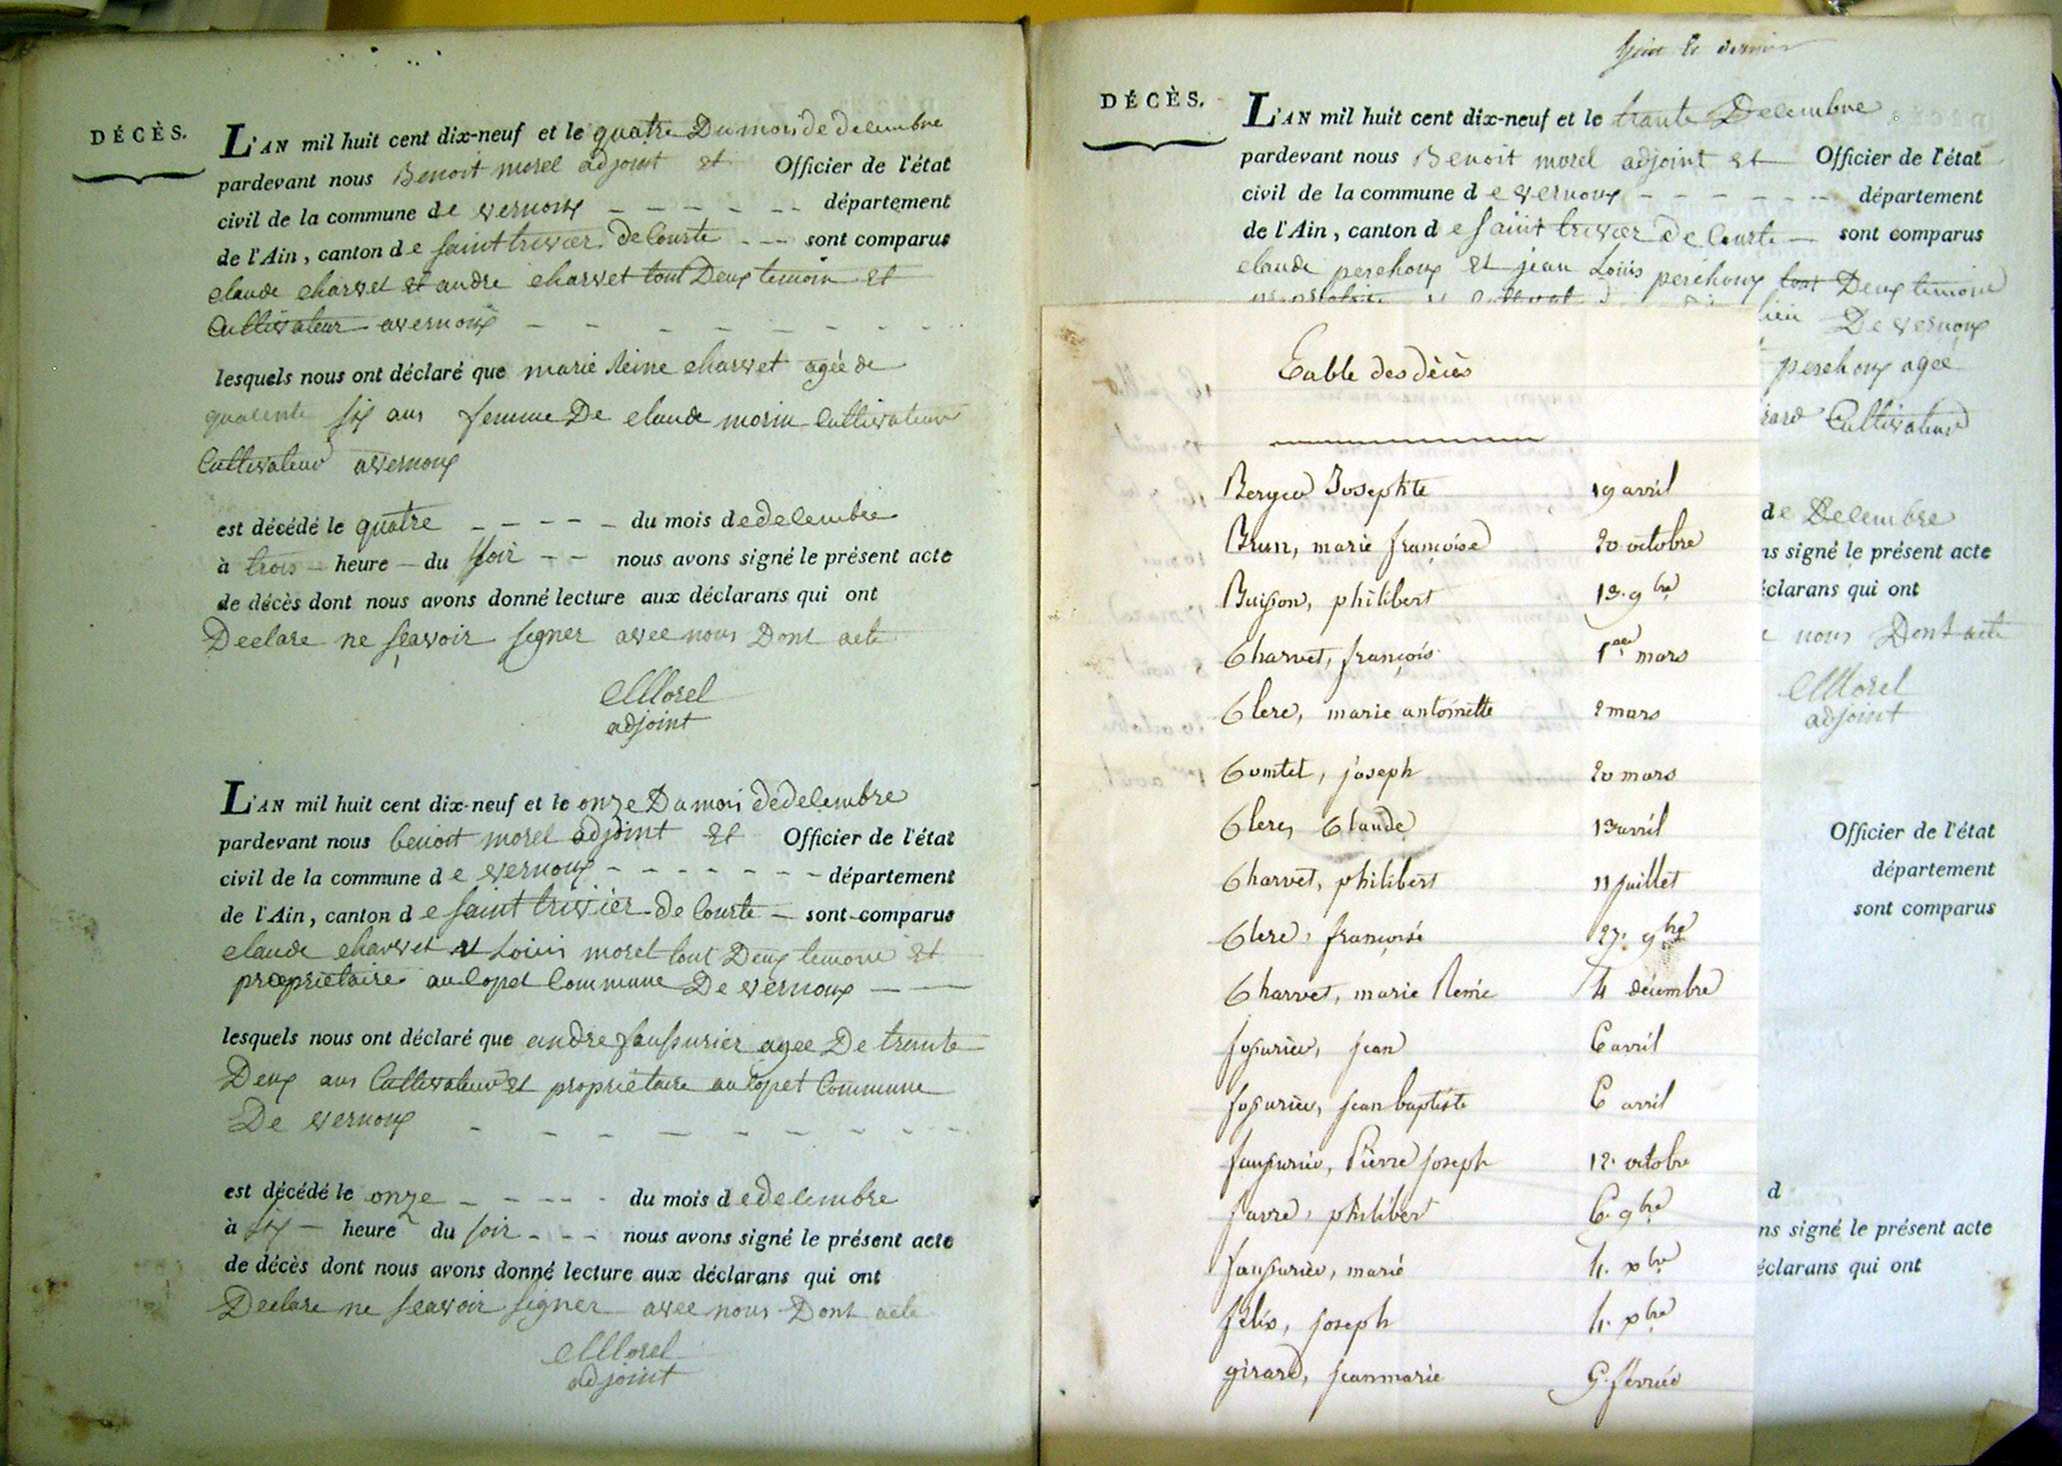 DÉCÈS.
L'AN mil huit cent dix-neuf et le quatre Du mois de decembre
pardevant nous Benoit morel adjoint et Officier de l'état
civil de la commune de vernoux département
de l'Ain, canton de saint trivier de Courte sont comparus
claude charvet et andre charvet tout Deux temoin et
Cultivateur a vernoux
lesquels nous ont déclaré que marie Reine charvet agée de
quarente six ans femme De claude morin Cultivateur
Cultivateur a vernoux
est décédé le quatre du mois de decembre
à trois heure du soir nous avons signé le présent acte
de décès dont nous avons donné lecture aux déclarans qui ont
Declare ne scavoir signer avec nous Dont acte
Morel
adjoint
L'AN mil huit cent dix-neuf et le onze Du mois de decembre
pardevant nous benoit morel adjoint et Officier de l'état
civil de la commune de vernoux département
de l'Ain, canton de saint trivier de Courte sont comparus
claude charvet et Louis morel tout Deux temoin et
proprietaire au Commune De vernoux
lesquels nous ont déclaré que andre agee De trente
Deux ans Cultivateur et proprietaire au Commune
De vernoux
est décédé le onze du mois de decembre
à six heure du soir nous avons signé le présent acte
de décès dont nous avons donné lecture aux déclarans qui ont
Declare ne scavoir signer avec nous Dont acte
Morel
adjoint
le dernier
DÉCÈS.
L'AN mil huit cent dix-neuf et le trante Decembre
pardevant nous Benoit morel adjoint et Officier de l'état
civil de la commune de vernoux département
de l'Ain, canton de saint trivier de Courte sont comparus
claude perchoux et jean Louis perchoux tout Deux temoin
De vernoux
perchoux agee
Cultivateur
de Decembre
ns signé le présent acte
éclarans qui ont
nous Dont acte
Morel
adjoint
Officier de l'état
département
sont comparus
d
ns signé le présent acte
éclarans qui ont
Table des décès
Josephte 19 avril
Brun, marie françoise 20 octobre
Buisson, philibert 13. 9bre
Charvet, françois 1er mars
Clerc, marie antoinette 2 mars
Comtet, joseph 20 mars
Clerc, Claude 13 avril
Charvet, philibert 11 juillet
Clerc, françoise 27. 9bre
Charvet, marie Reine 4 décembre
jean 6 avril
jean baptiste 6 avril
Pierre joseph 12. octobre
favre, philibert 6. 9bre
marie 4. xbre
félix, joseph 4. xbre
girard, jeanmarie 9. février